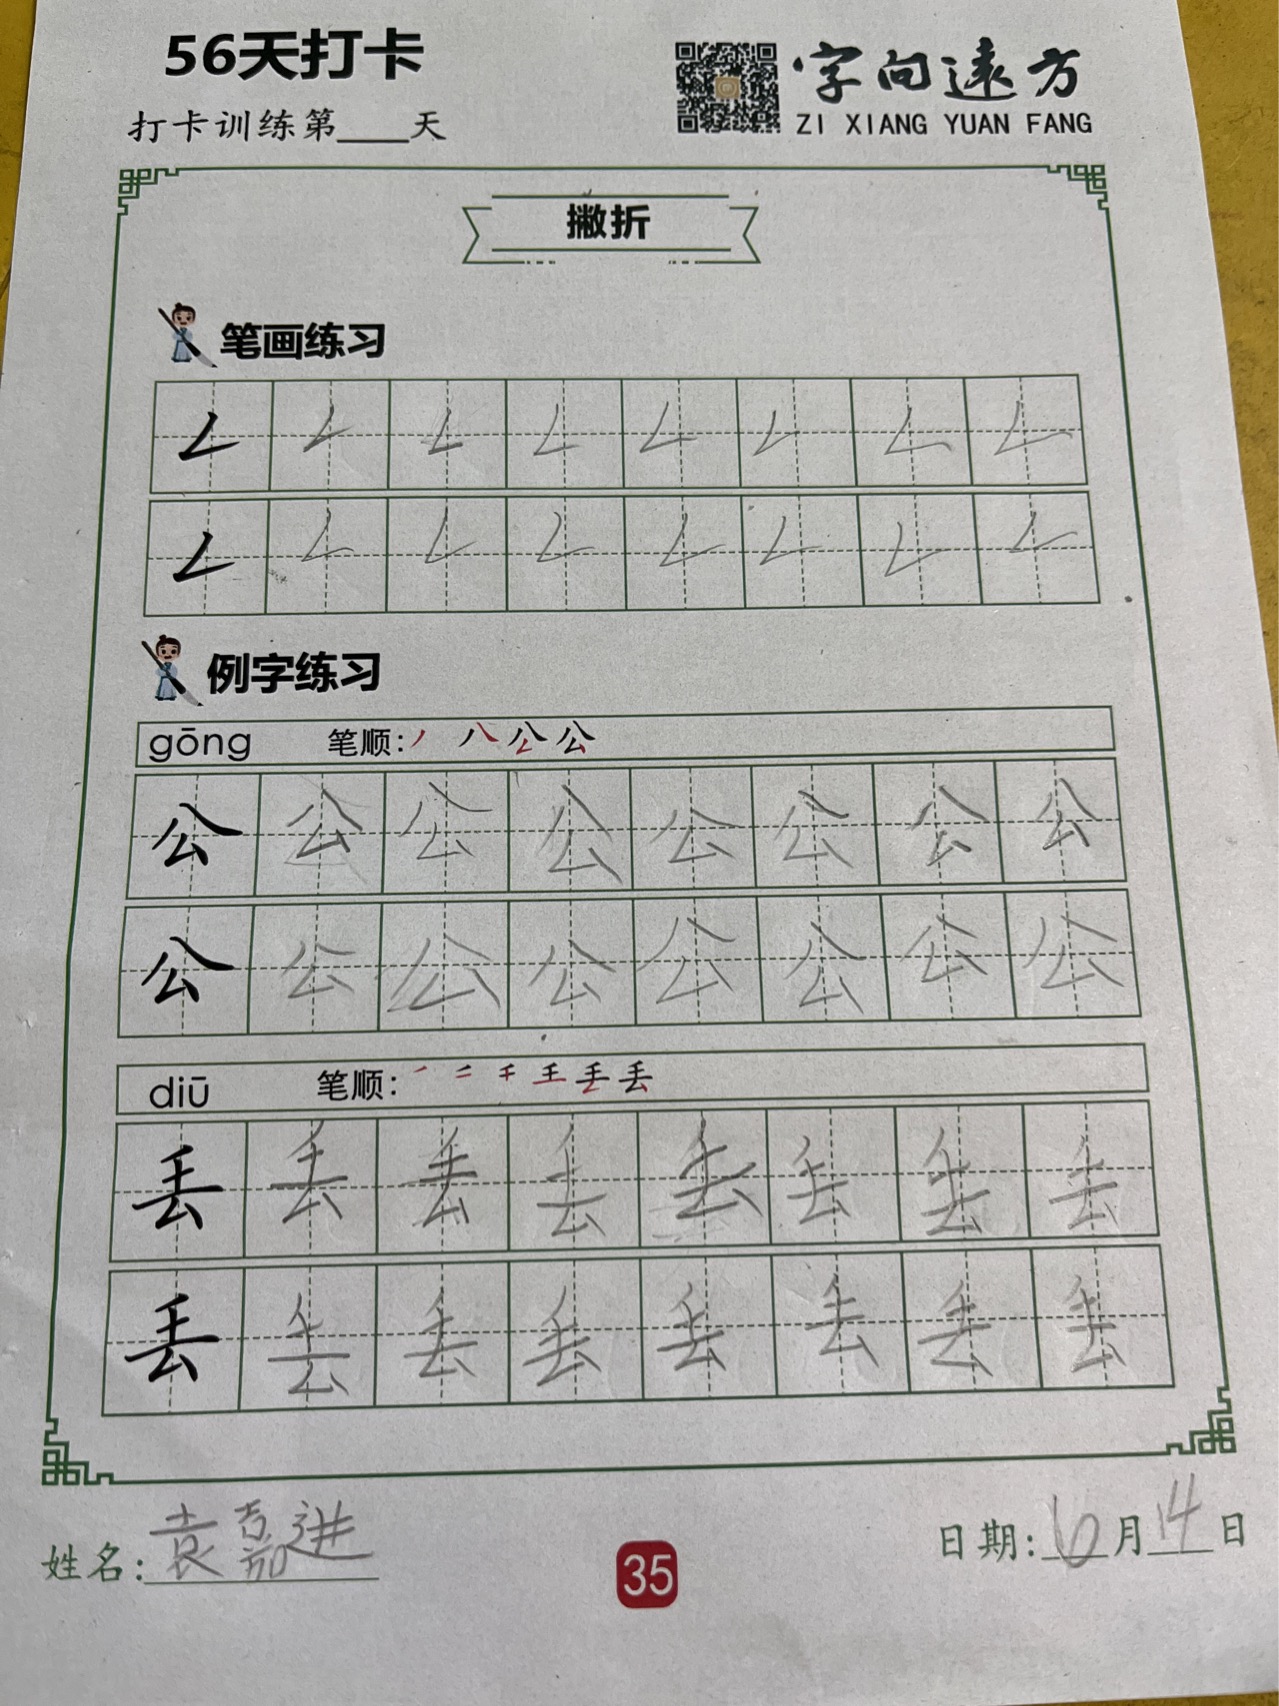 56天打卡
打卡训练第____天
字向远方
ZI XIANG YUAN FANG
撇折
笔画练习
㇜ ㇜ ㇜ ㇜ ㇜ ㇜ ㇜ ㇜
㇜ ㇜ ㇜ ㇜ ㇜ ㇜ ㇜ ㇜
例字练习
gōng 笔顺:
公 公 公 公 公 公 公 公
公 公 公 公 公 公 公 公
diū 笔顺:
丢 丢 丢 丢 丢 丢 丢 丢
丢 丢 丢 丢 丢 丢 丢 丢
姓名:袁嘉进
35
日期:6月14日